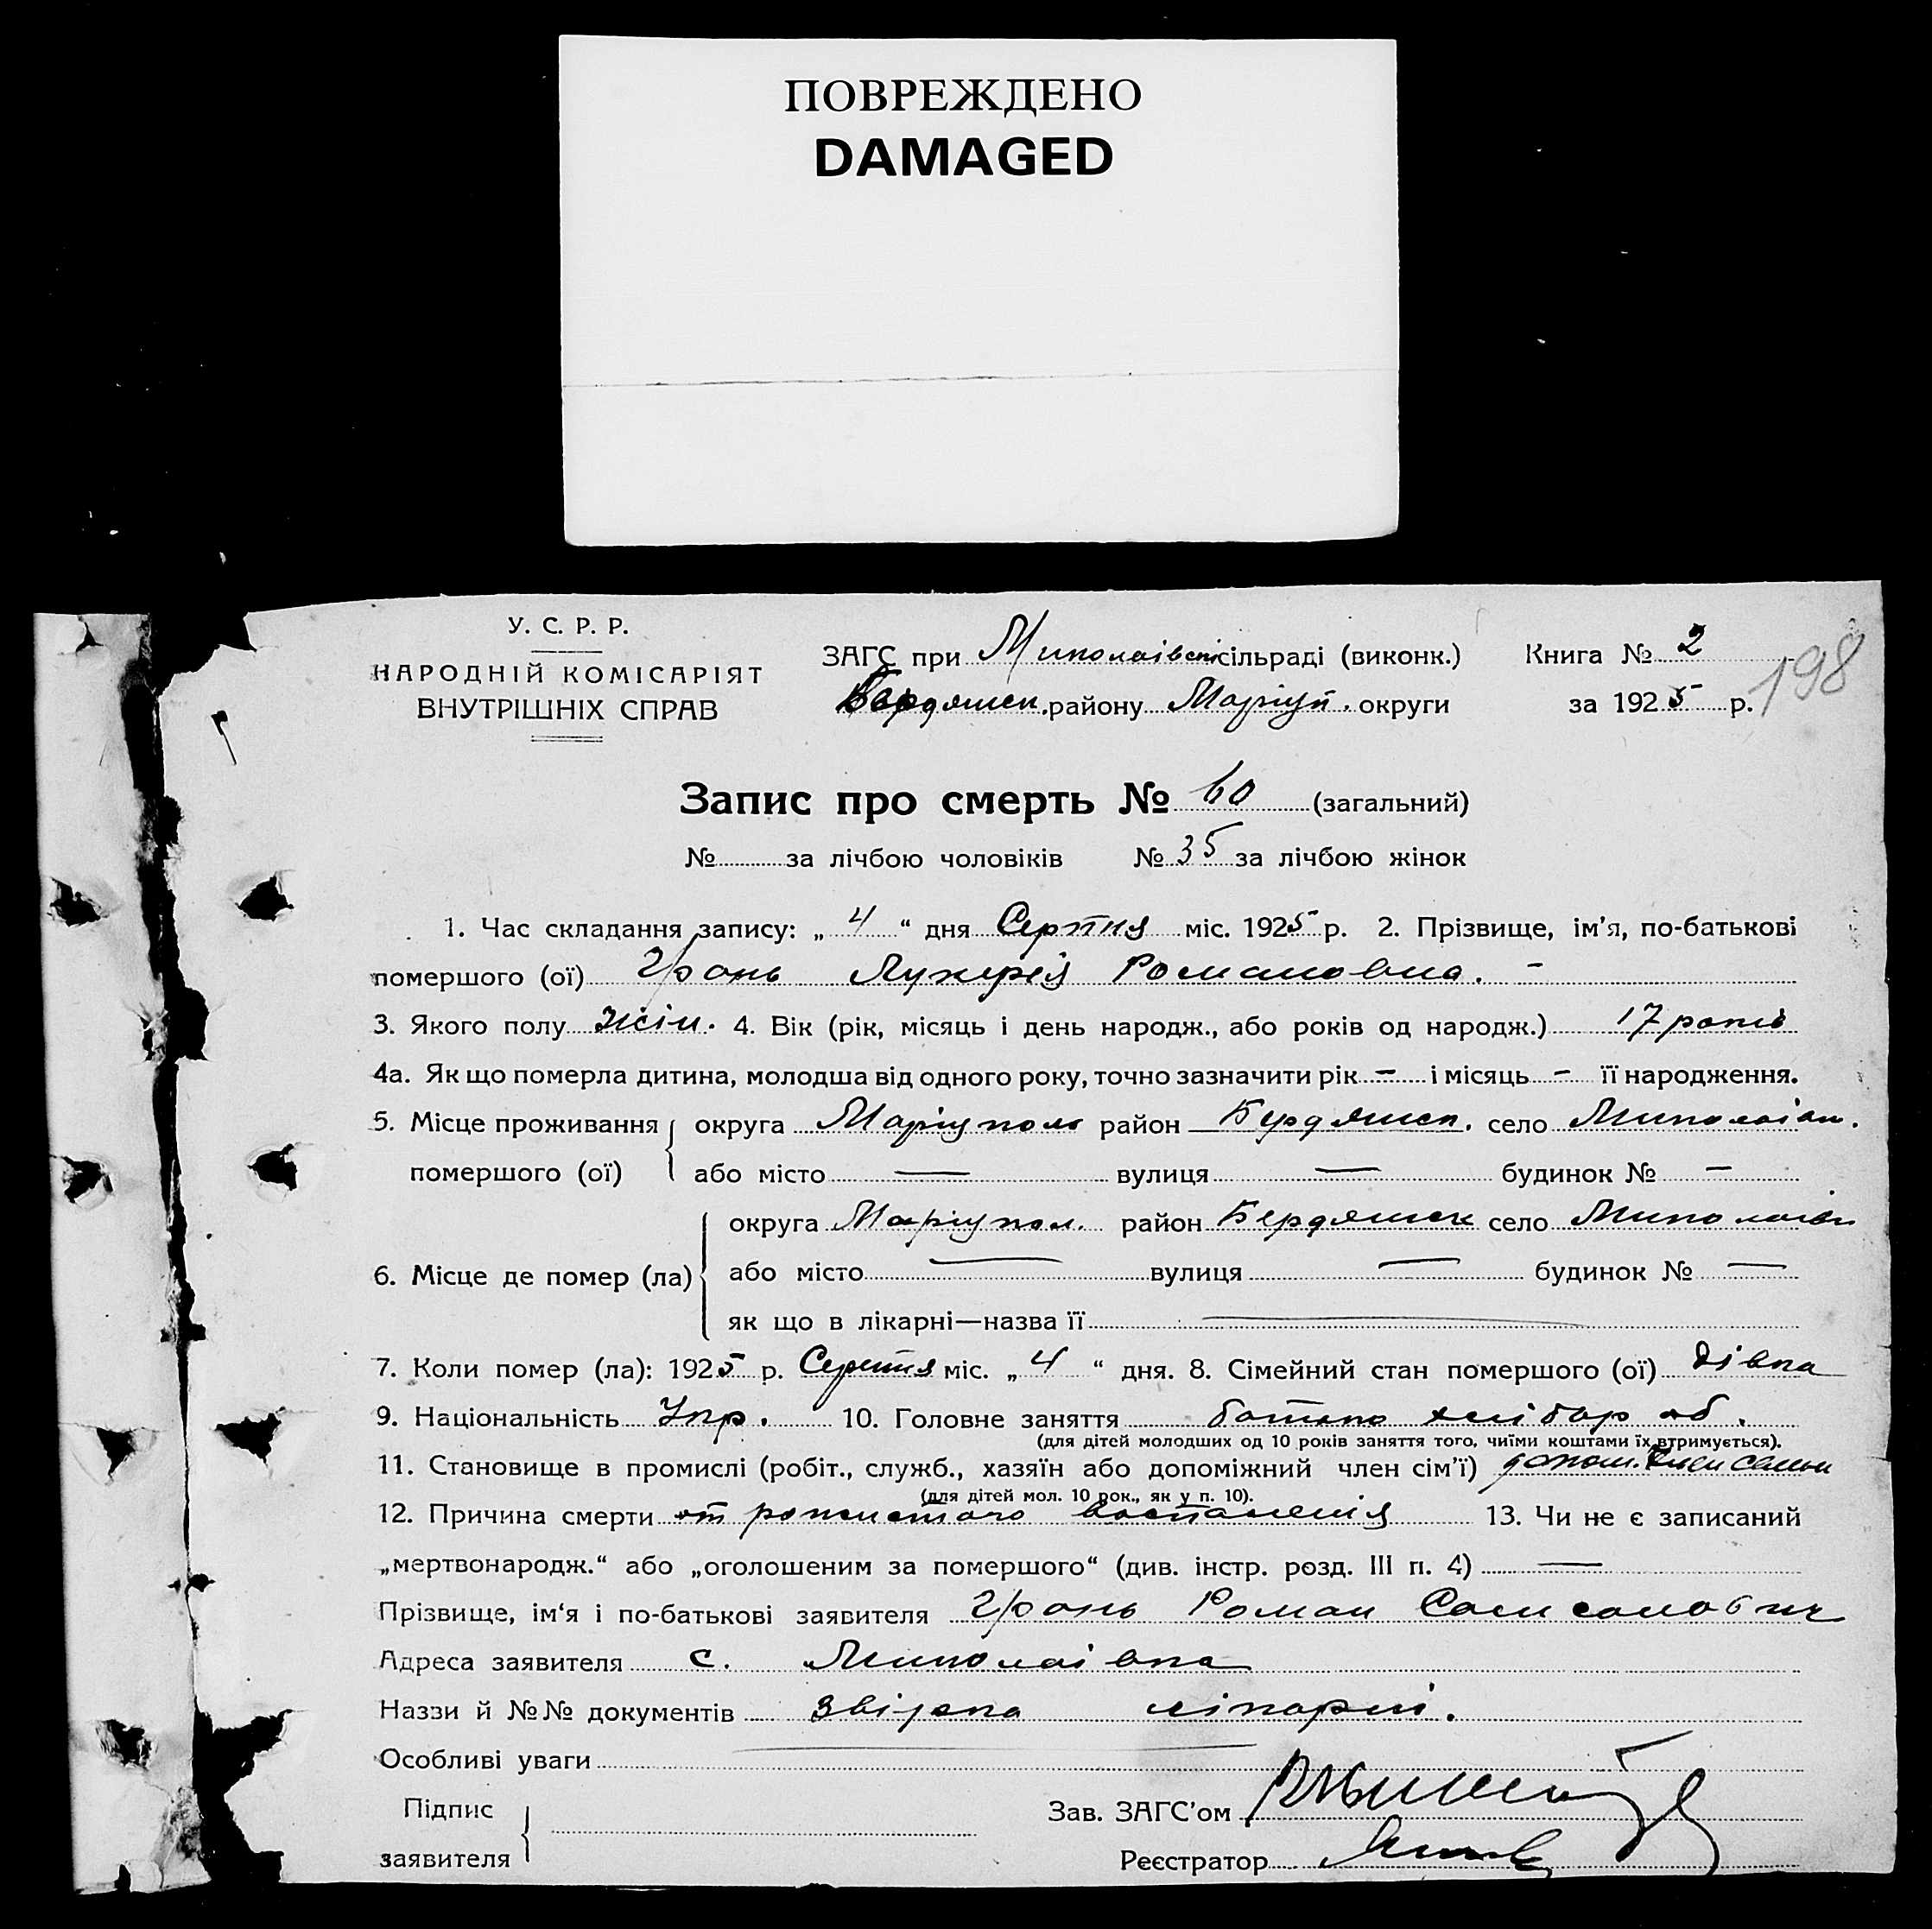 ПОВРЕЖДЕНО
DAMAGED
У. С. Р. Р.
НАРОДНІЙ КОМІСАРІЯТ
ВНУТРІШНІХ СПРАВ
ЗАГС при Миколаівск сільраді (виконк.)
Бердянск. району Маріуп. округи
Книга № 2
за 1925 р.
198
Запис про смерть № 60 (загальний)
№ за лічбою чоловіків № 35 за лічбою жінок
1. Час складання запису: „ 4 “ дня Серпня міс. 1925 р. 2. Прізвище, ім’я, по-батькові
помершого (ої) Гронь Лукерія Романовна. -
3. Якого полу жін. 4. Вік (рік, місяць і день народж., або років од народж.) 17 років
4а. Як що померла дитина, молодша від одного року, точно зазначити рік - і місяць - її народження.
5. Місце проживання округа Маріуполь район Бердянск. село Миколаів.
помершого (ої) або місто — вулиця — будинок № —
округа Маріупол. район Бердянск село Миколаів
6. Місце де помер (ла) або місто — вулиця — будинок № —
як що в лікарні—назва її —
7. Коли помер (ла): 1925 р. Серпня міс. „ 4 “ дня. 8. Сімейний стан помершого (ої) дівка
9. Національність Укр. 10. Головне заняття батько хлібороб.
(для дітей молодших од 10 років заняття того, чиїми коштами їх втримується).
11. Становище в промислі (робіт., служб., хазяїн або допоміжний член сім’ї) допом. член семьи
(для дітей мол. 10 рок., як у п. 10).
12. Причина смерти от рожистого воспаленія 13. Чи не є записаний
„мертвонародж.“ або „оголошеним за помершого“ (див. інстр. розд. III п. 4) —
Прізвище, ім‘я і по-батькові заявителя Гронь Роман Самсонович
Адреса заявителя с. Миколаівка
Назви й №№ документів звірка лікарні.
Особливі уваги —
Підпис
заявителя
Зав. ЗАГС’ом
Реєстратор